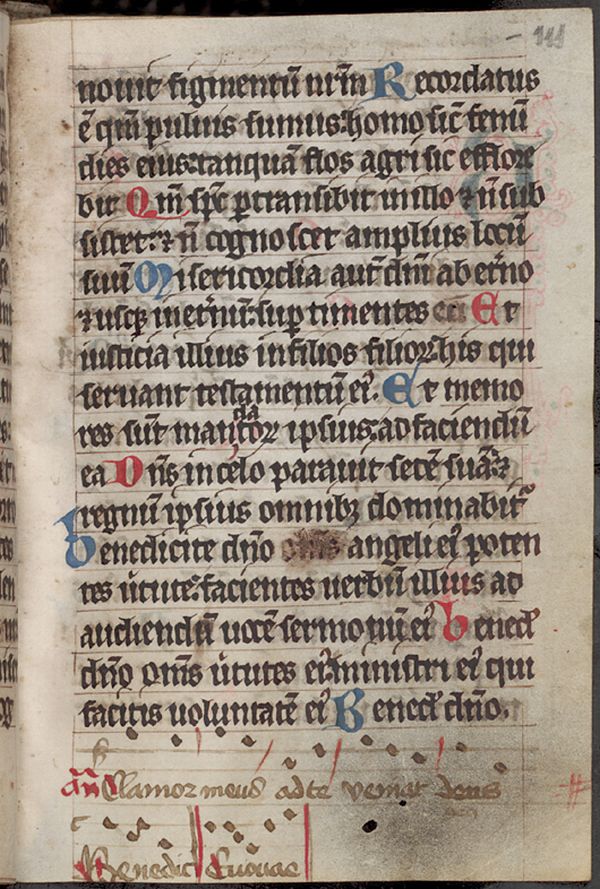 111
nouit figmentū nr̄m Recordatus
ē qm̄ puluis sumus: homo sic̄ fenū
dies eius: tanquā flos agri sic efflore
bit Qm̄ sp̄c p̄transibit in illo ⁊ n̄ sub
sistet: ⁊ n̄ cognoscet amplius locū
suū Misericordia aut̄ dn̄i ab et̄no
⁊ usq; in et̄nū: sup timentes eū Et
iusticia illius in filios filior̄: his qui
seruant testamentū ei᾿. Et memo
res sūt mandator̄ ipsius: ad faciendū
ea Dn̄s in celo parauit sedē suā: ⁊
regnū ipsius omnibꝫ dominabit᾿
Benedicite dn̄o om̄s angeli ei᾿ poten
tes ūtute: facientes uerbū illius ad
audiendū uocē sermonū ei᾿ Bened᾿
dn̄o om̄s ūtutes ei᾿: ministri ei᾿ qui
facitis uoluntatē ei᾿ Bened᾿ dn̄o.
an̄ Clamor meus ad te veniat deus
Benedic Euouae